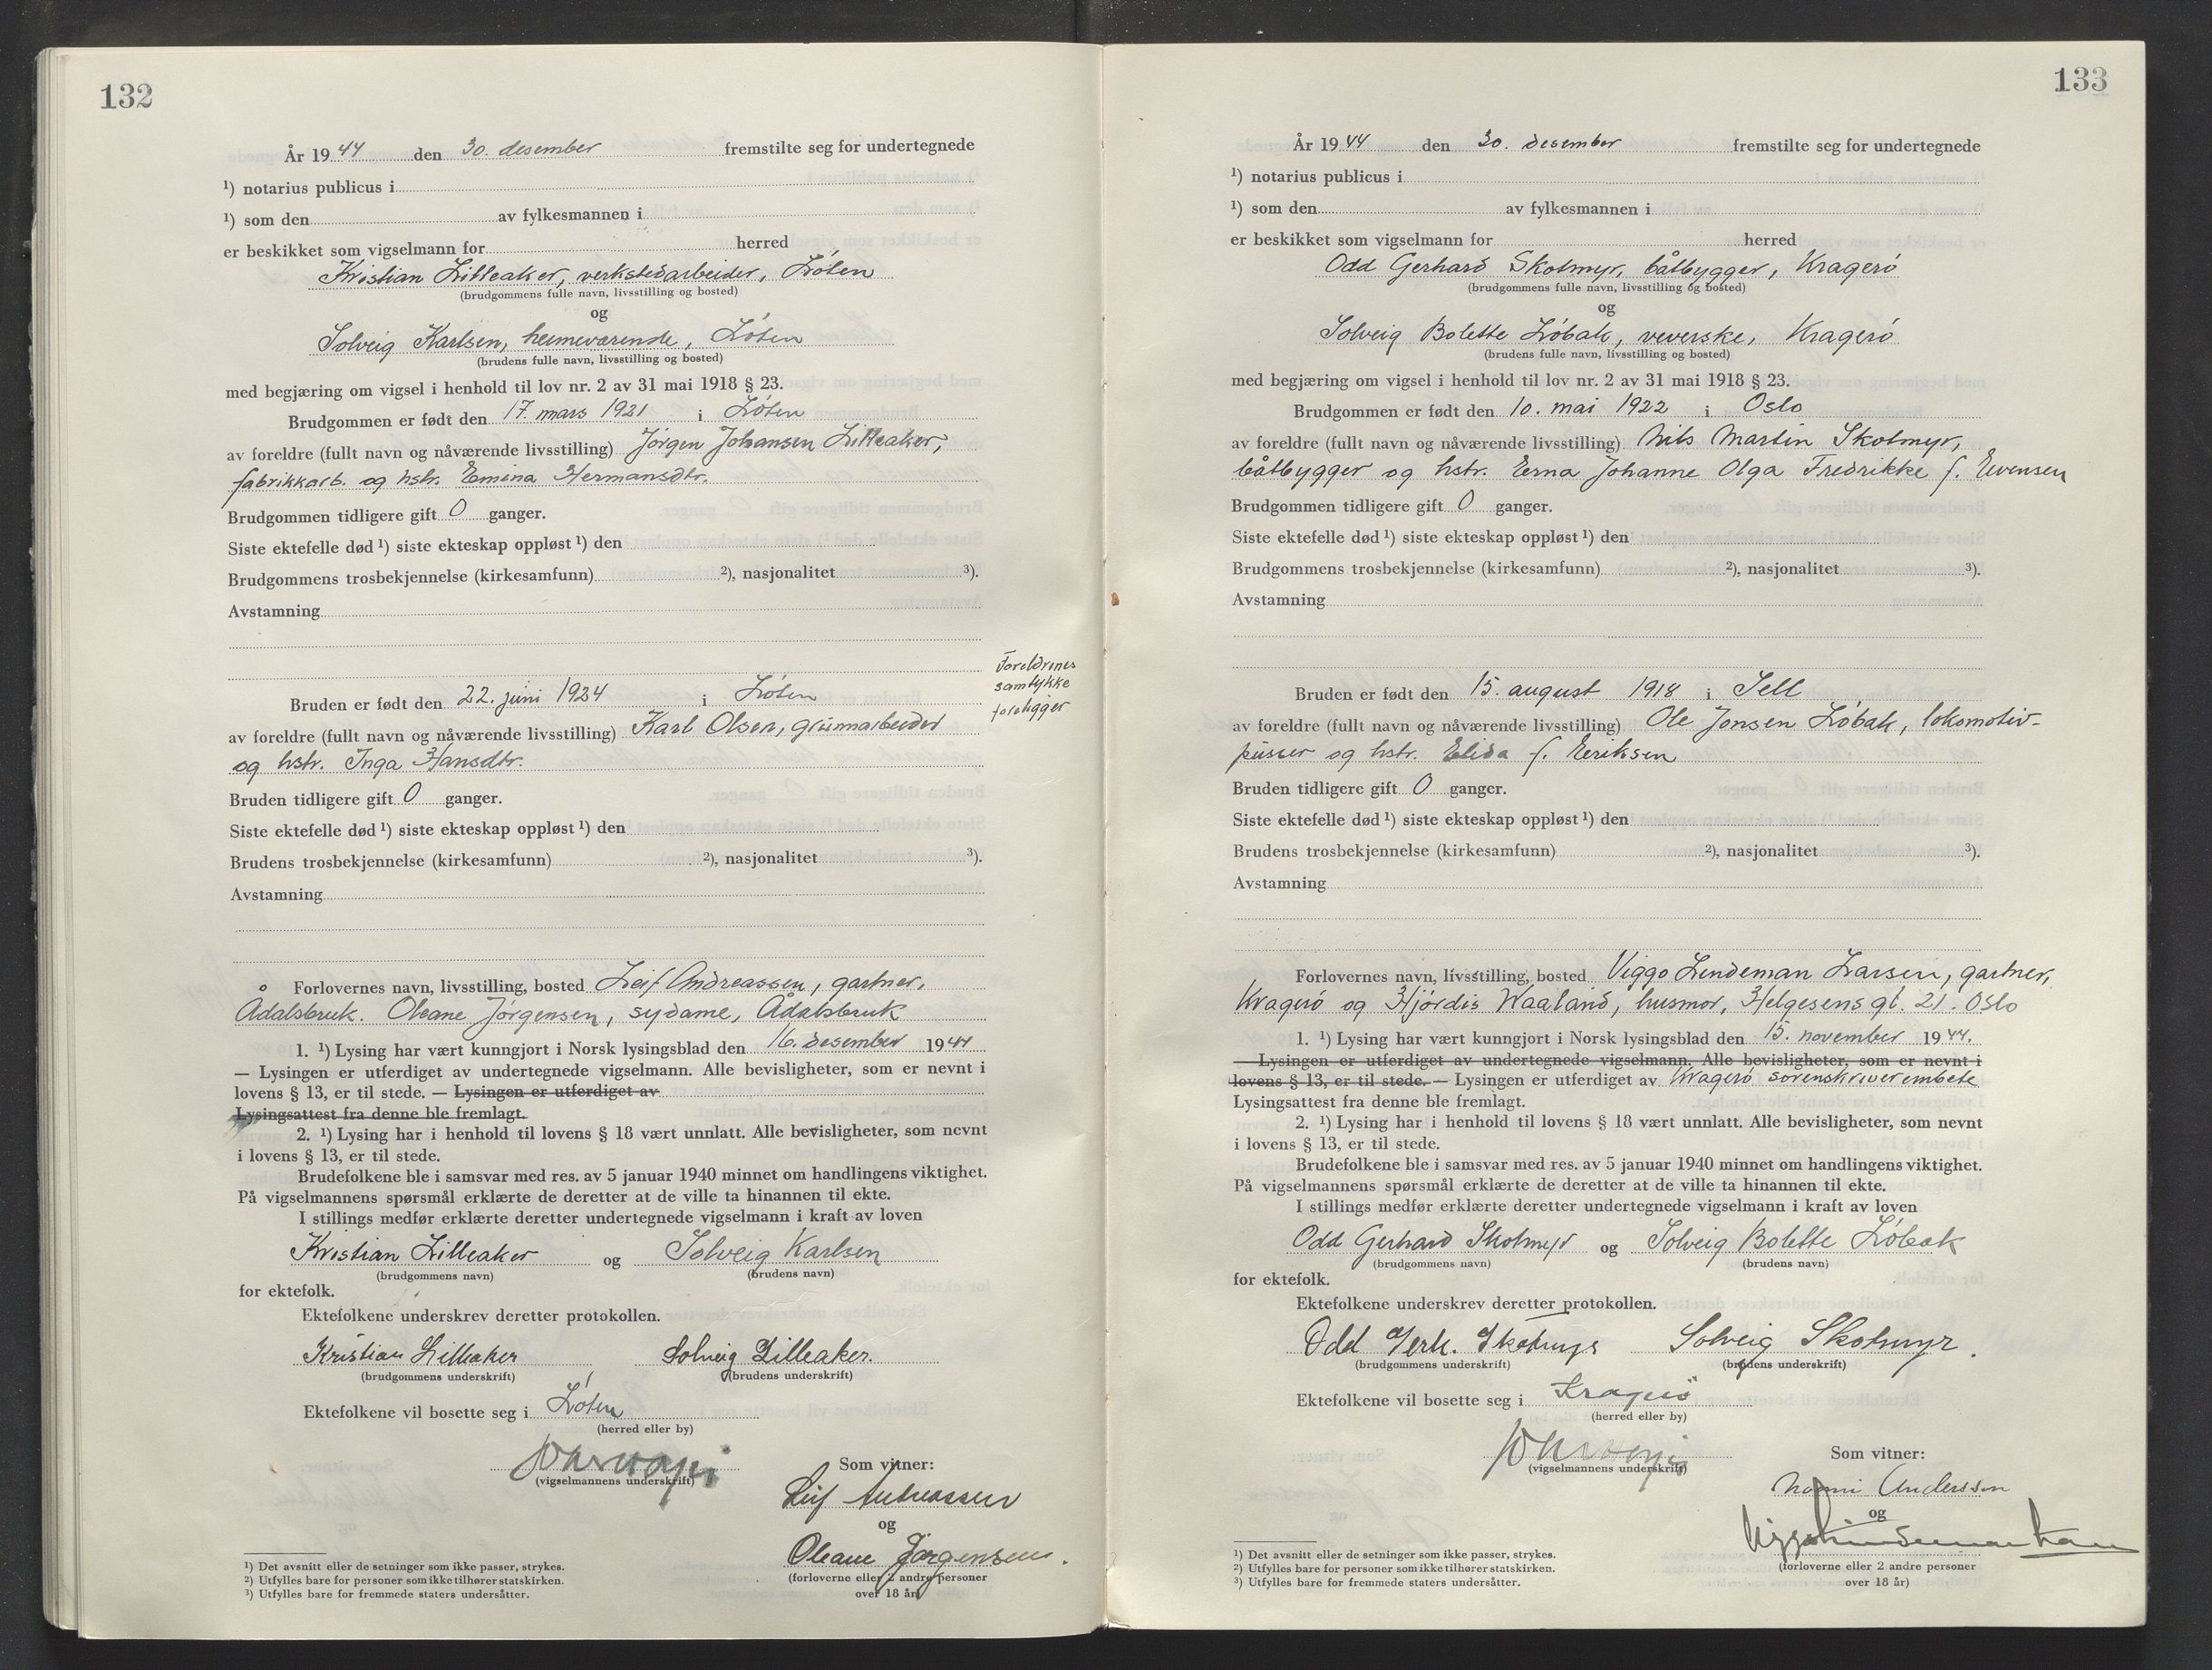 132
År 1944 den 30. desember fremstilte seg for undertegnede
¹) notarius publicus i
¹) som den av fylkesmannen i
er beskikket som vigselmann for herred
Kristian Lilleaker, verkstedarbeider, Löten
(brudgommens fulle navn, livsstilling og bosted)
og
Solveig Karlsen, heimeværende, Löten
(brudens fulle navn, livsstilling og bosted)
med begjæring om vigsel i henhold til lov nr. 2 av 31 mai 1918 § 23.
Brudgommen er født den 17. mars 1921 i Löten
av foreldre (fullt navn og nåværende livsstilling) Jörgen Johansen Lilleaker,
fabrikkarb. og hstr. Emina Hermansdtr.
Brudgommen tidligere gift 0 ganger.
Siste ektefelle død ¹) siste ekteskap oppløst ¹) den
Brudgommens trosbekjennelse (kirkesamfunn) ²), nasjonalitet ³).
Avstamning
Foreldrenes
samtykke
foreligger
Bruden er født den 22. juni 1924 i Löten
av foreldre (fullt navn og nåværende livsstilling) Karl Olsen, grünnarbeider
og hstr. Inga Hansdtr.
Bruden tidligere gift 0 ganger.
Siste ektefelle død ¹) siste ekteskap oppløst ¹) den
Brudens trosbekjennelse (kirkesamfunn) ²), nasjonalitet ³).
Avstamning
Forlovernes navn, livsstilling, bosted Leif Andreassen, gartner,
Ådalsbruk. Oleane Jörgensen, sydame, Ådalsbruk
1. ¹) Lysing har vært kunngjort i Norsk lysingsblad den 16. desember 1944
— Lysingen er utferdiget av undertegnede vigselmann. Alle bevisligheter, som er nevnt i
lovens § 13, er til stede. — Lysingen er utferdiget av
Lysingsattest fra denne ble fremlagt.
2. ¹) Lysing har i henhold til lovens § 18 vært unnlatt. Alle bevisligheter, som nevnt
i lovens § 13, er til stede.
Brudefolkene ble i samsvar med res. av 5 januar 1940 minnet om handlingens viktighet.
På vigselmannens spørsmål erklærte de deretter at de ville ta hinannen til ekte.
I stillings medfør erklærte deretter undertegnede vigselmann i kraft av loven
Kristian Lilleaker og Solveig Karlsen
(brudgommens navn) (brudens navn)
for ektefolk.
Ektefolkene underskrev deretter protokollen.
Kristian Lilleaker Solveig Lilleaker.
(brudgommens underskrift) (brudens underskrift)
Ektefolkene vil bosette seg i Löten
(herred eller by)
(vigselmannens underskrift)
Som vitner:
Leif Andreassen
og
Oleane Jörgensen.
(forloverne eller 2 andre personer
over 18 år)
¹) Det avsnitt eller de setninger som ikke passer, strykes.
²) Utfylles bare for personer som ikke tilhører statskirken.
³) Utfylles bare for fremmede staters undersåtter.
133
År 1944 den 30. desember fremstilte seg for undertegnede
¹) notarius publicus i
¹) som den av fylkesmannen i
er beskikket som vigselmann for herred
Odd Gerhard Skotmyr, båtbygger, Kragerö
(brudgommens fulle navn, livsstilling og bosted)
og
Solveig Bolette Löbak, veverske, Kragerö
(brudens fulle navn, livsstilling og bosted)
med begjæring om vigsel i henhold til lov nr. 2 av 31 mai 1918 § 23.
Brudgommen er født den 10. mai 1922 i Oslo
av foreldre (fullt navn og nåværende livsstilling) Nils Martin Skotmyr,
båtbygger og hstr. Erna Johanne Olga Fredrikke f. Evensen
Brudgommen tidligere gift 0 ganger.
Siste ektefelle død ¹) siste ekteskap oppløst ¹) den
Brudgommens trosbekjennelse (kirkesamfunn) ²), nasjonalitet ³).
Avstamning
Bruden er født den 15. august 1918 i Sell
av foreldre (fullt navn og nåværende livsstilling) Ole Jonsen Löbak, lokomotiv-
püsser og hstr. Elida f. Eeriksen
Bruden tidligere gift 0 ganger.
Siste ektefelle død ¹) siste ekteskap oppløst ¹) den
Brudens trosbekjennelse (kirkesamfunn) ²), nasjonalitet ³).
Avstamning
Forlovernes navn, livsstilling, bosted Viggo Lindeman Larsen, gartner,
Kragerö og Hjördis Waaland, husmor, Helgesens gt. 21. Oslo
1. ¹) Lysing har vært kunngjort i Norsk lysingsblad den 15. november 1944.
— Lysingen er utferdiget av undertegnede vigselmann. Alle bevisligheter, som er nevnt i
lovens § 13, er til stede. — Lysingen er utferdiget av Kragerö sorenskriverembete
Lysingsattest fra denne ble fremlagt.
2. ¹) Lysing har i henhold til lovens § 18 vært unnlatt. Alle bevisligheter, som nevnt
i lovens § 13, er til stede.
Brudefolkene ble i samsvar med res. av 5 januar 1940 minnet om handlingens viktighet.
På vigselmannens spørsmål erklærte de deretter at de ville ta hinannen til ekte.
I stillings medfør erklærte deretter undertegnede vigselmann i kraft av loven
Odd Gerhard Skotmyr og Solveig Bolette Löbak
(brudgommens navn) (brudens navn)
for ektefolk.
Ektefolkene underskrev deretter protokollen.
Odd Gerh. Skotmyr Solveig Skotmyr.
(brudgommens underskrift) (brudens underskrift)
Ektefolkene vil bosette seg i Kragerö
(herred eller by)
(vigselmannens underskrift)
Som vitner:
Andersson
og
Viggo Lindeman Larsen
(forloverne eller 2 andre personer
over 18 år)
¹) Det avsnitt eller de setninger som ikke passer, strykes.
²) Utfylles bare for personer som ikke tilhører statskirken.
³) Utfylles bare for fremmede staters undersåtter.